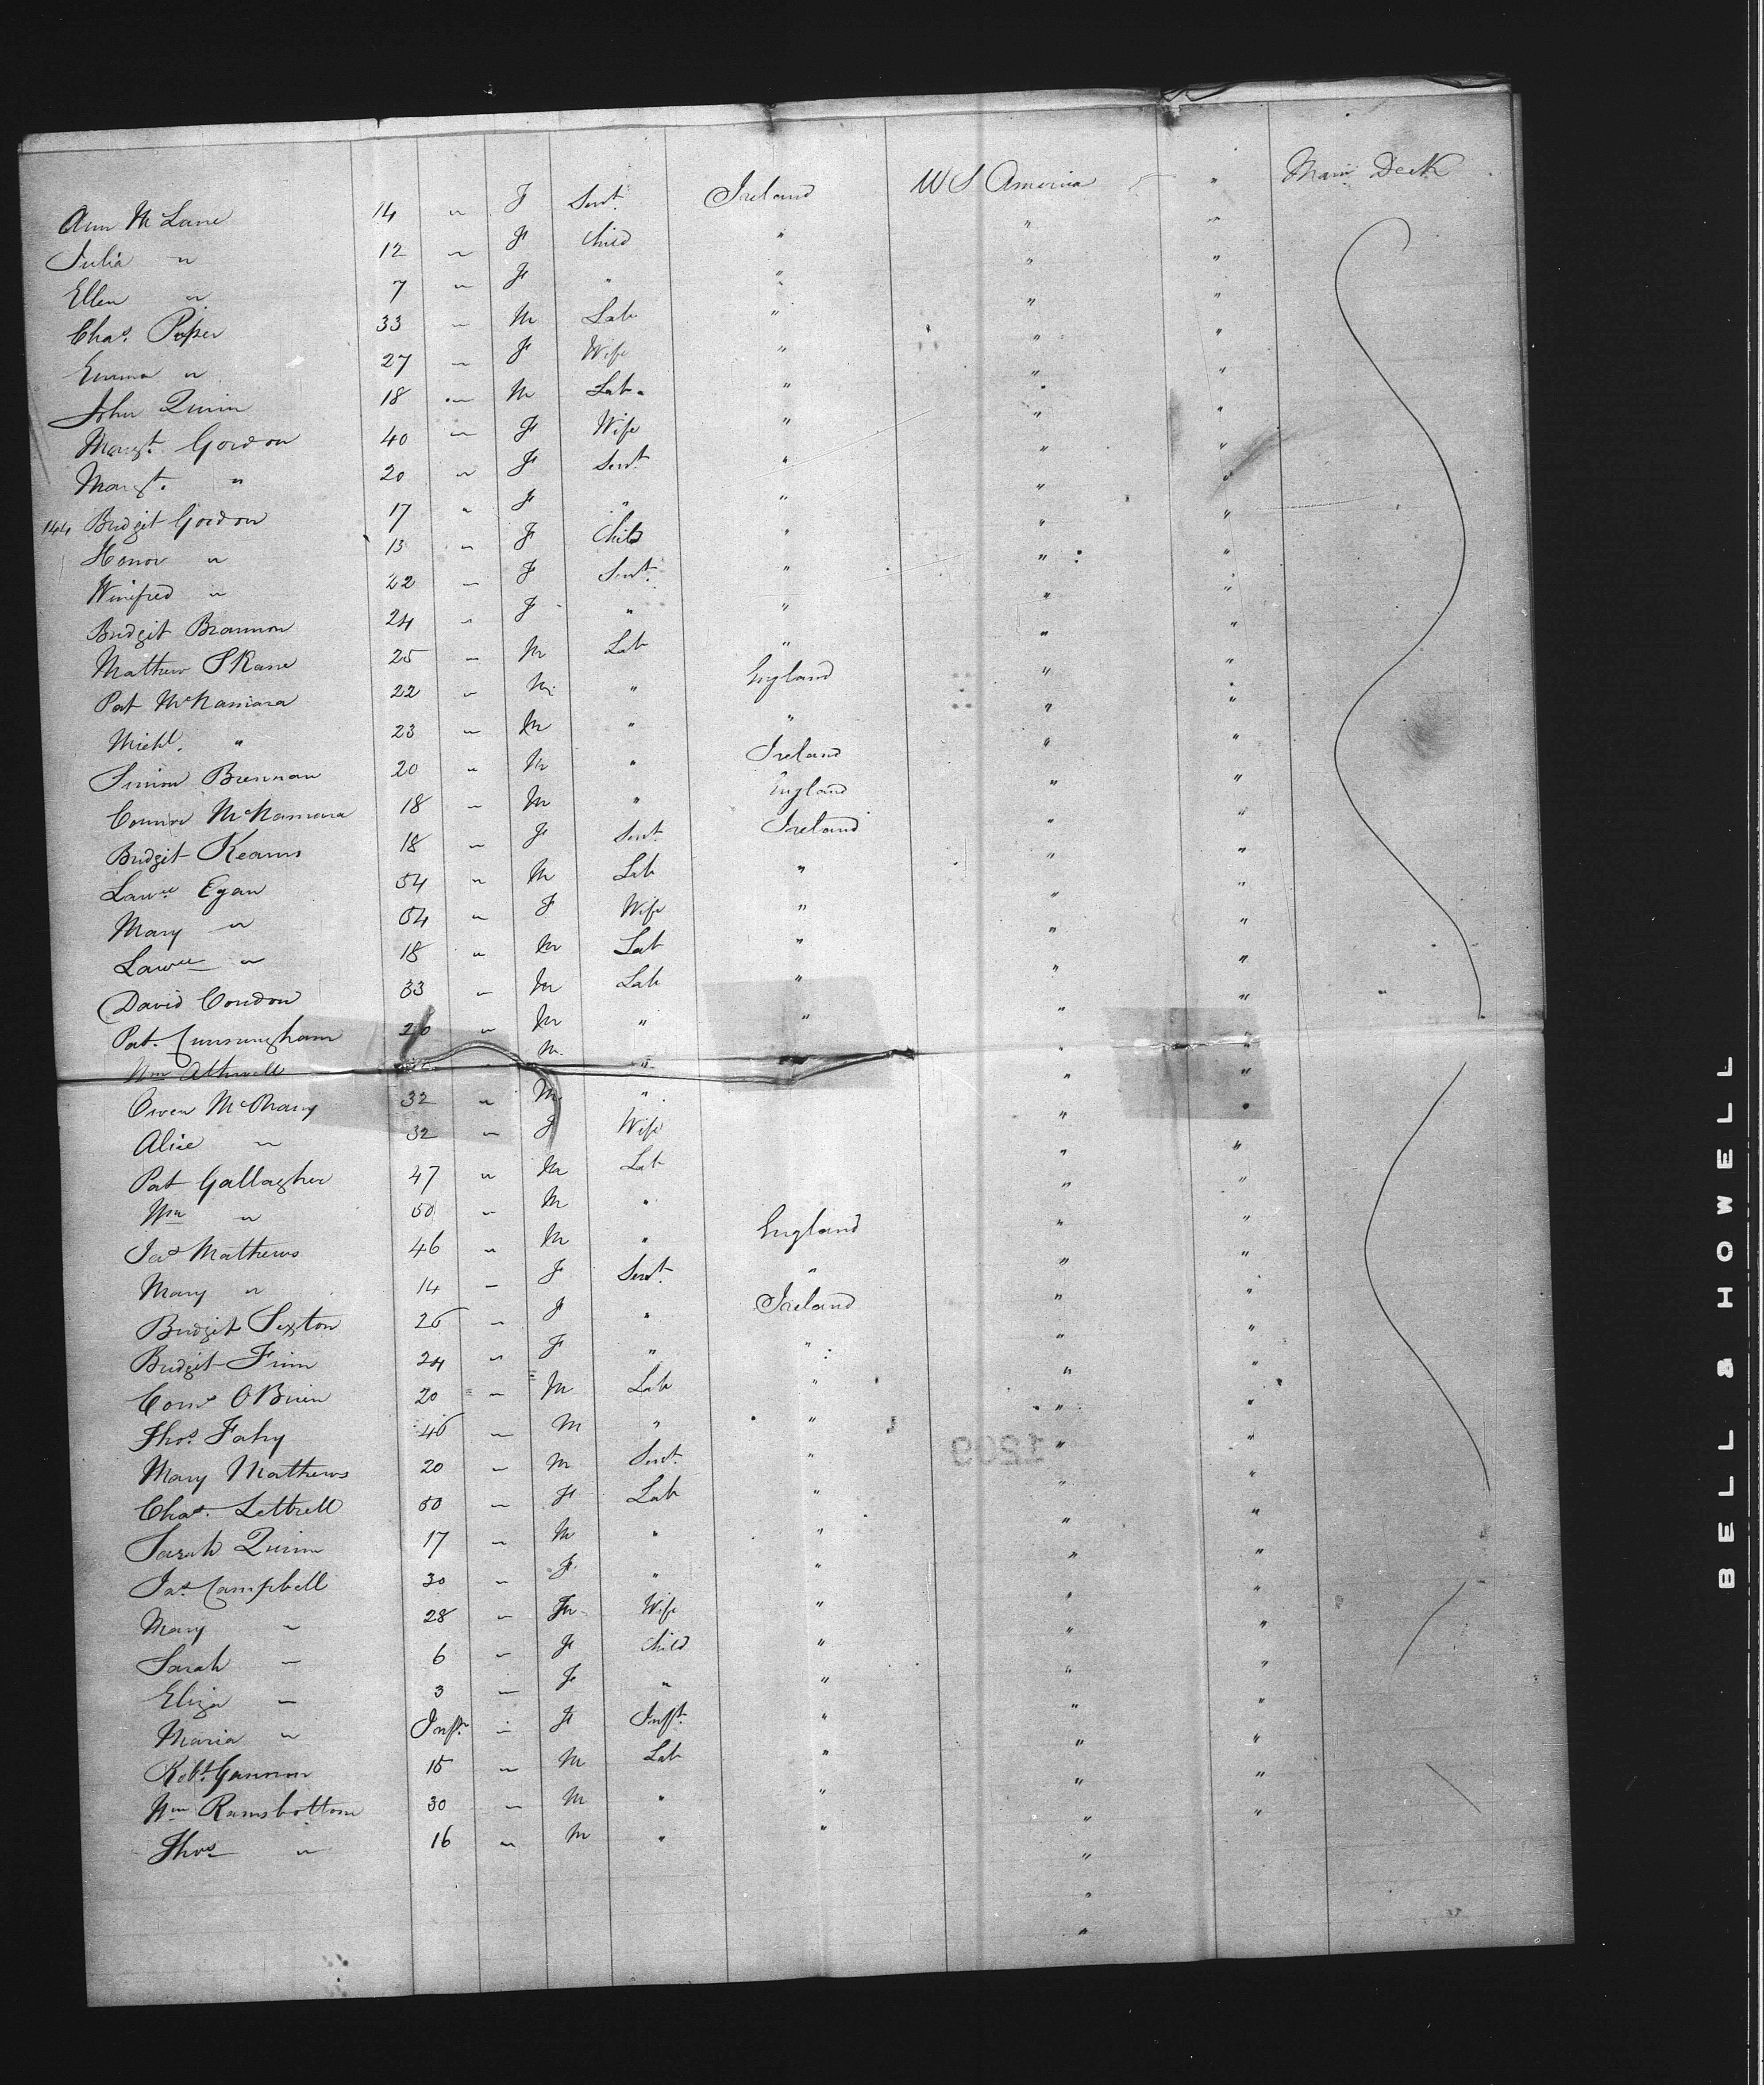 Ann McLane 14 " F Servt. Ireland U S America " Main Deck
Julia " 12 " F Child " " "
Ellen " 7 " F " " " "
Chas. Piper 33 " M Lab " " "
Emma " 27 " F Wife " " "
John Quinn 18 " M Lab. " " "
Margt. Gordon 40 " F Wife " " "
Margt. " 20 " F Servt " " "
144 Bridget Gordon 17 " F " " " "
Honor " 13 " F Child " " "
Winifred " 22 " F Servt. " " "
Bridgit Brannon 24 " F " " " "
Mathew S Kane 25 " M Lab " " "
Pat McNamara 22 " M " England " "
Michl. " 23 " M " " " "
Simon Brennan 20 " M " Ireland " "
Connor McNamara 18 " M " England " "
Bridgit Kearns 18 " F Servt. Ireland " "
Lawce Egan 54 " M Lab " " "
Mary " 54 " F Wife " " "
Lawce " 18 " M Lab " " "
David Condon 33 " M Lab " " "
Pat. Cunningham 20 " M " " " "
Wm Athwell " M. " " " "
Owen 32 " M. " " "
Alice " 32 " F Wife " "
Pat Gallagher 47 " M Lab " "
Wm " 50 " M " " "
Jas Mathews 46 " M " England " "
Mary " 14 " F Servt. " " "
Bridgit Sexton 26 " F " Ireland " "
Bridgit Finn 24 " F " " " "
Corns O Brien 20 " M Lab " " "
Thos. Fahy 46 " M " " " "
Mary Mathews 20 " M Servt. " " "
Chas. Lettrell 50 " F Lab " " "
Sarah Quinn 17 " M " " " "
Jas. Campbell 30 " F " " " "
Mary " 28 " M Wife " " "
Sarah " 6 " F Child " " "
Eliza " 3 " F " " " "
Maria " Inft. " F Inft. " " "
Robt. Gannon 15 " M Lab " " "
Wm Ramsbottom 30 " M " " " "
Thos " 16 " M " " "
"
"
1209
BELL & HOWELL